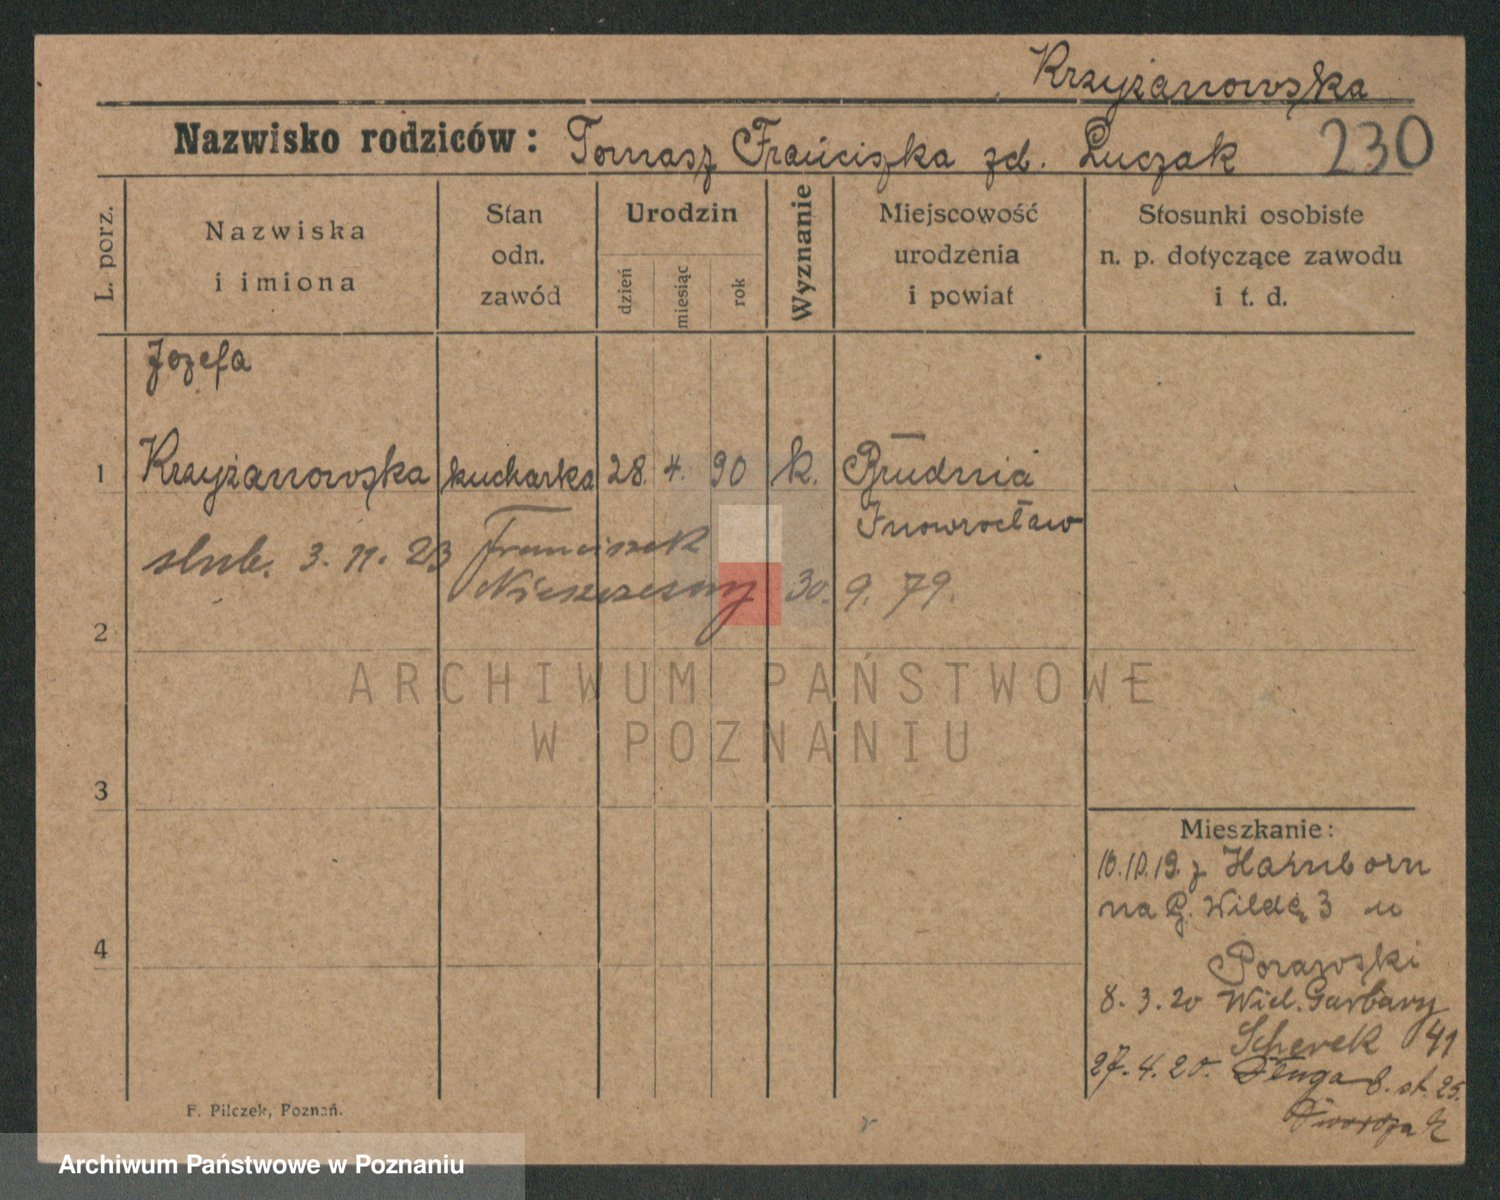 Krzyżanowska
Nazwisko rodziców: Tomasz Franciszka zd. Łuczak 230
L. porz.
Nazwiska i imiona
Stan odn. zawód
Urodzin
dzień
miesiąc
rok
Wyznanie
Miejscowość urodzenia i powiat
Stosunki osobiste n. p. dotyczące zawodu i t. d.
Józefa
1 Krzyżanowska kucharka 28. 4. 90 k. Brudnia
Inowrocław
ślub. 3. 11. 23 Franciszek
Nieszczesny 30. 9. 79.
2
ARCHIWUM PAŃSTWOWE
W POZNANIU
3
Mieszkanie:
10.10.19. z Hamborn
na G. Wildę 3 u
4
Porawski
8. 3. 20 Wiel. Garbary
Scherek 41
27. 4. 20. Długa 8. st. 25.
F. Pilczek, Poznań.
Archiwum Państwowe w Poznaniu